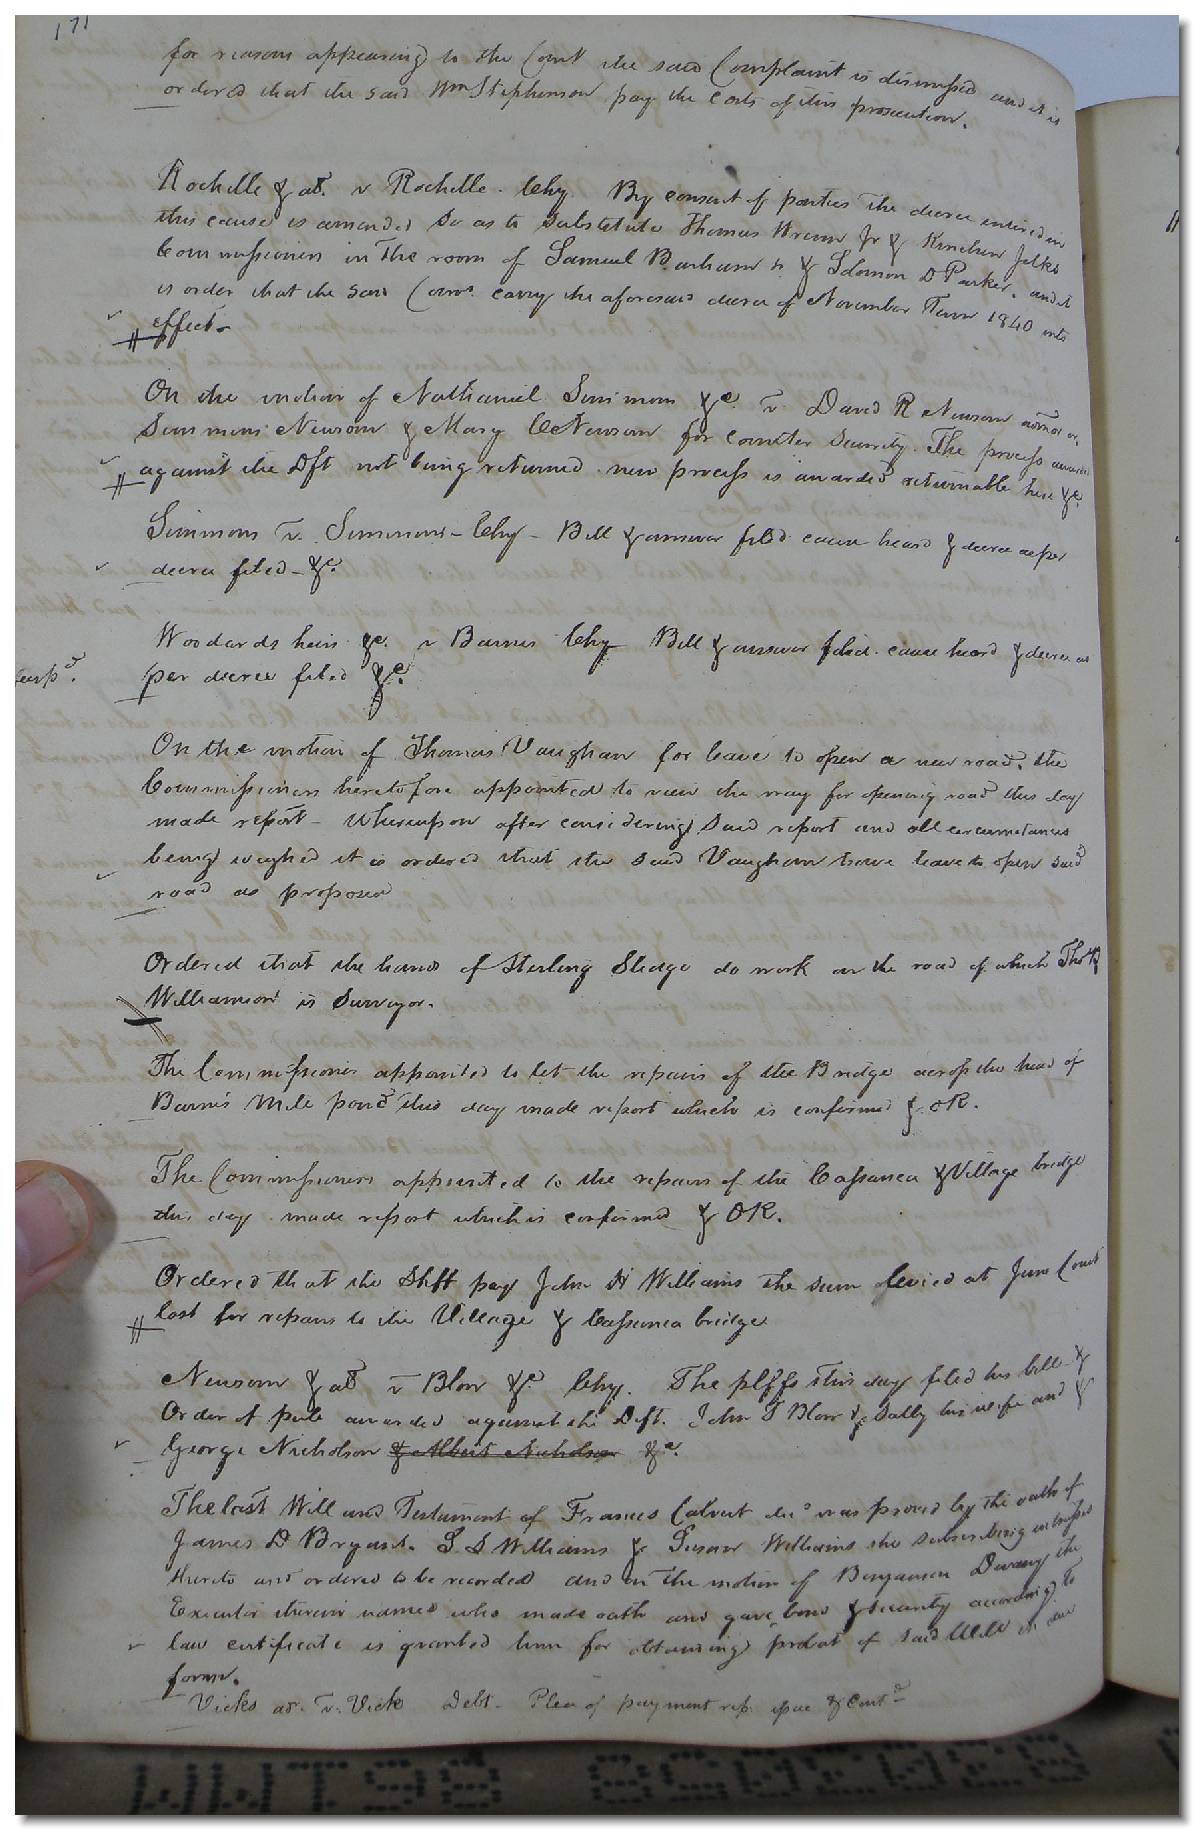 171
for reasons appearing to the Court the said Complaint is dismissed and it is
ordered that the said Wm Stephenson pay the costs of this prosecution.
Rochelle & al. v Rochelle. Chy. By consent of parties the decree entered in
this cause is amended so as to substitute Thomas Wrenn Jr & Kinchen Jelks
Commissioners in the room of Samuel Barham & Solomon D Parker. and it
is order that the said Comrs. carry the aforesaid decree of November Term 1840 into
effect.
On the motion of Nathaniel Simmons &c. v. David R Newsom admor of
Simmons Newsom & Mary Newsom for counter security. The process awarded
against the Dft not being returned new process is awarded returnable here &c.
Simmons v. Simmons - Chy - Bill & answer filed cause heard & decree as per
decree filed - &c.
Woodards heirs &c. v Barnes Chy Bill & answer filed. cause heard & decree as
per decree filed &c.
On the motion of Thomas Vaughan for leave to open a new road, the
Commissioners heretofore appointed to view the way for opening road this day
made report - Whereupon after considering said report and all circumstances
being weighed it is ordered that the said Vaughan have leave to open said
road as proposed
Ordered that the hands of Sterling Sledge do work on the road of which Thos
Williamson is Surveyor.
The Commissioners appointed to let the repairs of the Bridge across the head of
Barnes Mill pond this day made report which is confirmed & OR.
The Commissioners appointed to the repairs of the Cassanea & Village bridge
this day made report which is confirmed & OR.
Ordered that the Shff pay John H Williams the sum levied at June Court
last for repairs to the Village & Cassanea bridge
Newsom & al v Blow &c. Chy. The plffs this day filed his bill &
Order of pub awarded against the Dft. John T Blow & Sally his wife and
George Nicholson & Albert Nicholson &c.
The last Will and Testament of Frances Calvert decd was proved by the oath of
James D Bryant. S S Williams & Susan Williams the subscribing witnesses
thereto and ordered to be recorded and on the motion of Benjamin Devany the
Executor therein named who made oath and gave bond & security according to
law certificate is granted him for obtaining probat of said Will in due
form.
Vicks ad. v. Vick Debt - Plea of payment rep. issue & Contd